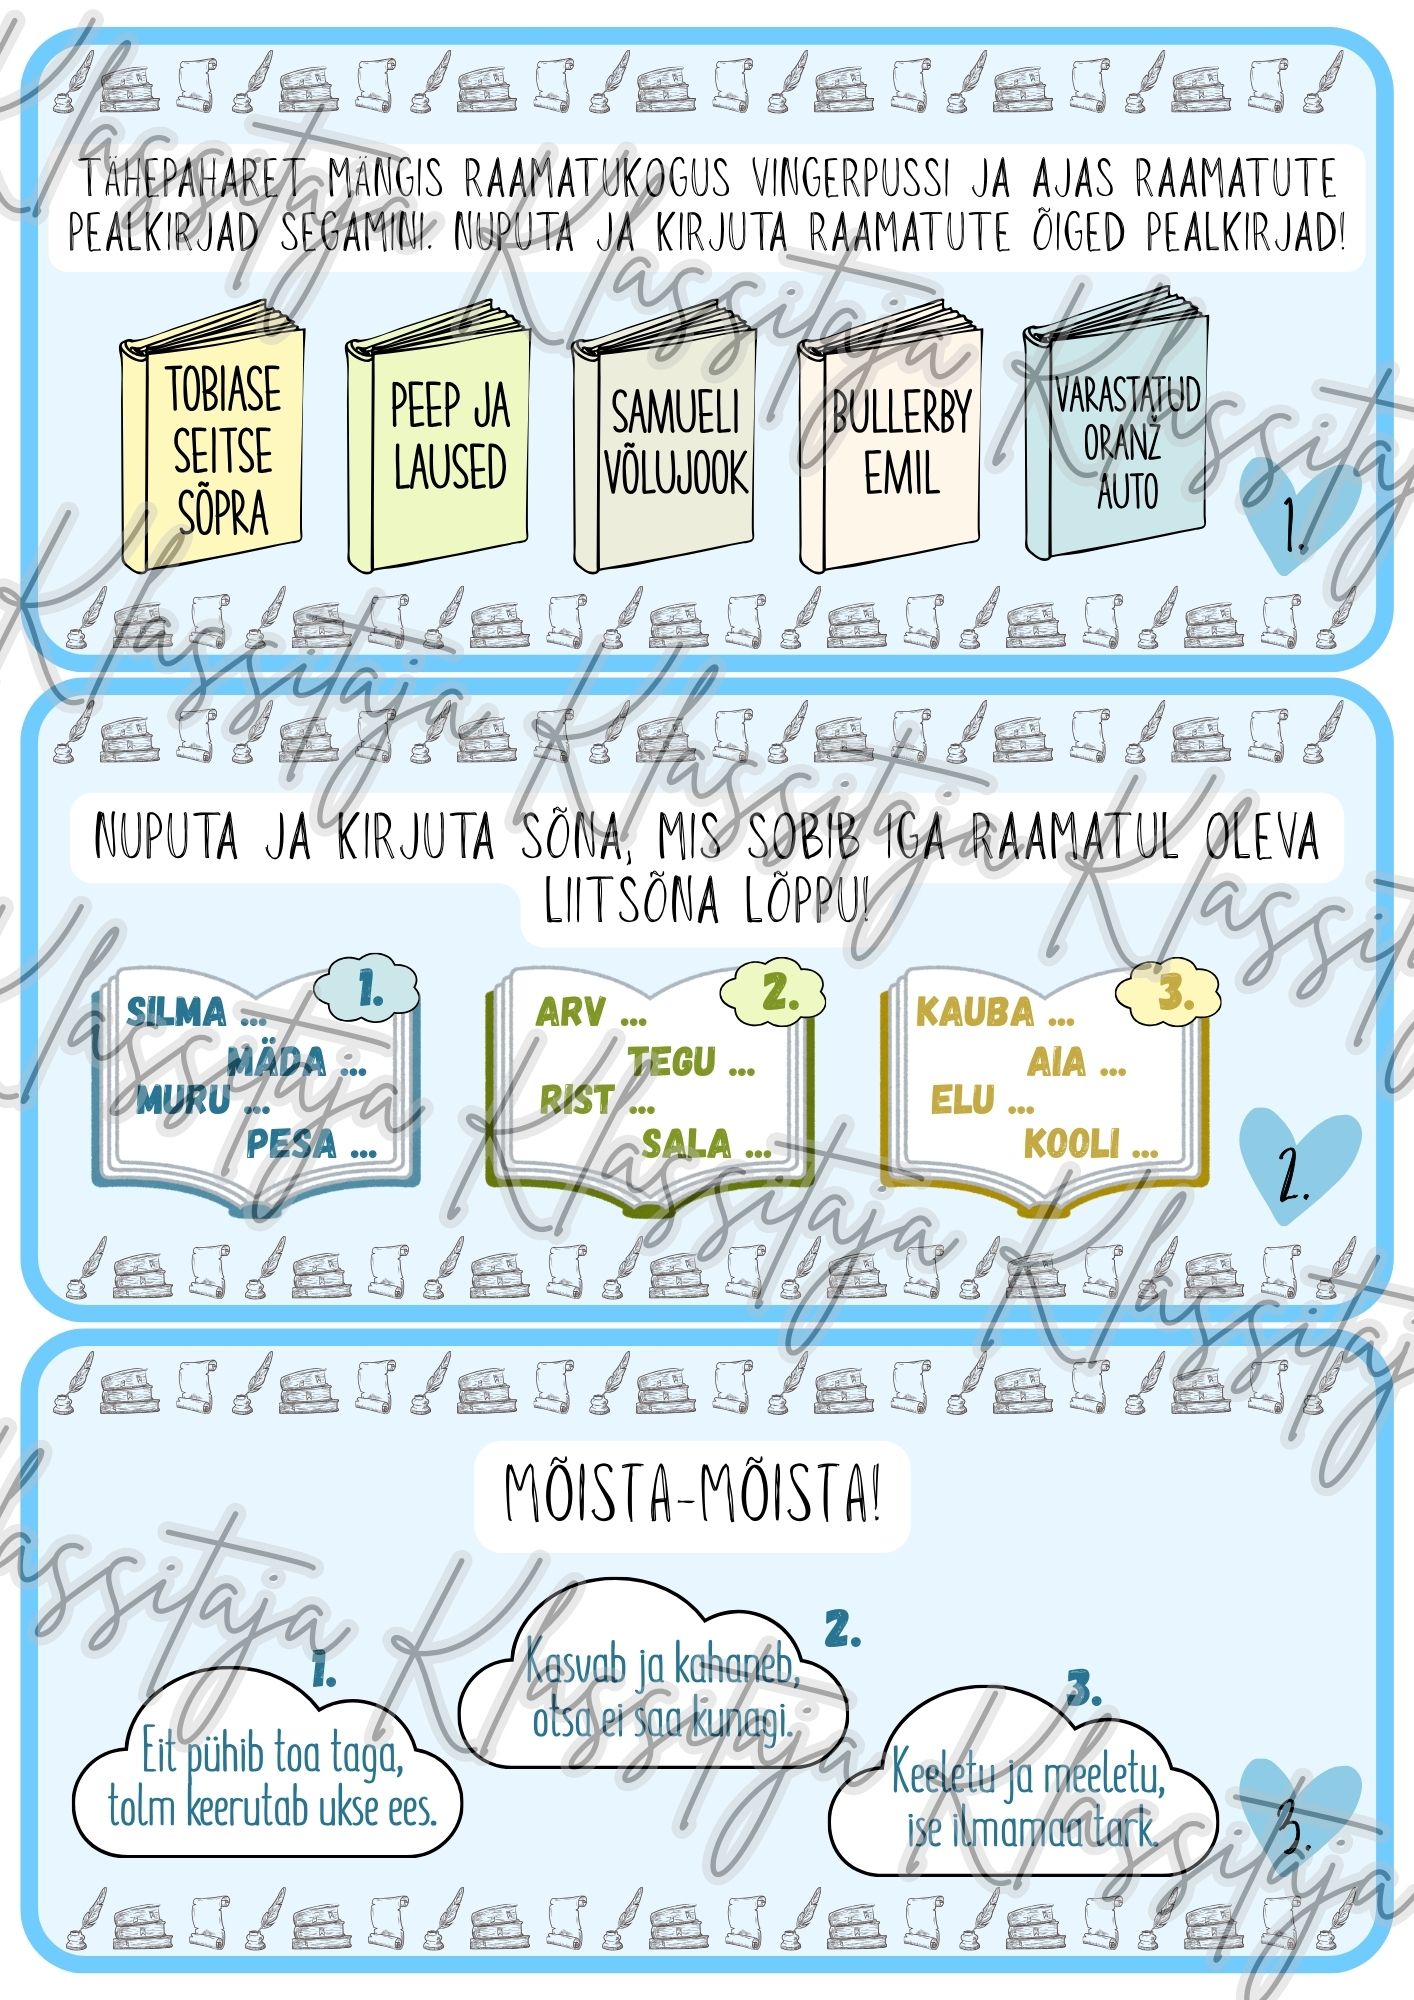 TÄHEPAHARET MÄNGIS RAAMATUKOGUS VINGERPUSSI JA AJAS RAAMATUTE
PEALKIRJAD SEGAMINI. NUPUTA JA KIRJUTA RAAMATUTE ÕIGED PEALKIRJAD!
TOBIASE
SEITSE
SÕPRA
PEEP JA
LAUSED
SAMUELI
VÕLUJOOK
BULLERBY
EMIL
VARASTATUD
ORANŽ
AUTO
1.
NUPUTA JA KIRJUTA SÕNA, MIS SOBIB IGA RAAMATUL OLEVA
LIITSÕNA LÕPPU!
1.
SILMA ...
MÄDA ...
MURU ...
PESA ...
2.
ARV ...
TEGU ...
RIST ...
SALA ...
3.
KAUBA ...
AIA ...
ELU ...
KOOLI ...
2.
MÕISTA-MÕISTA!
1.
Eit pühib toa taga,
tolm keerutab ukse ees.
2.
Kasvab ja kahaneb,
otsa ei saa kunagi.
3.
Keeletu ja meeletu,
ise ilmamaa tark.
3.
Klassitaja Klassitaja
Klassitaja Klassitaja Klassitaja
Klassitaja Klassitaja Klassitaja
Klassitaja Klassitaja